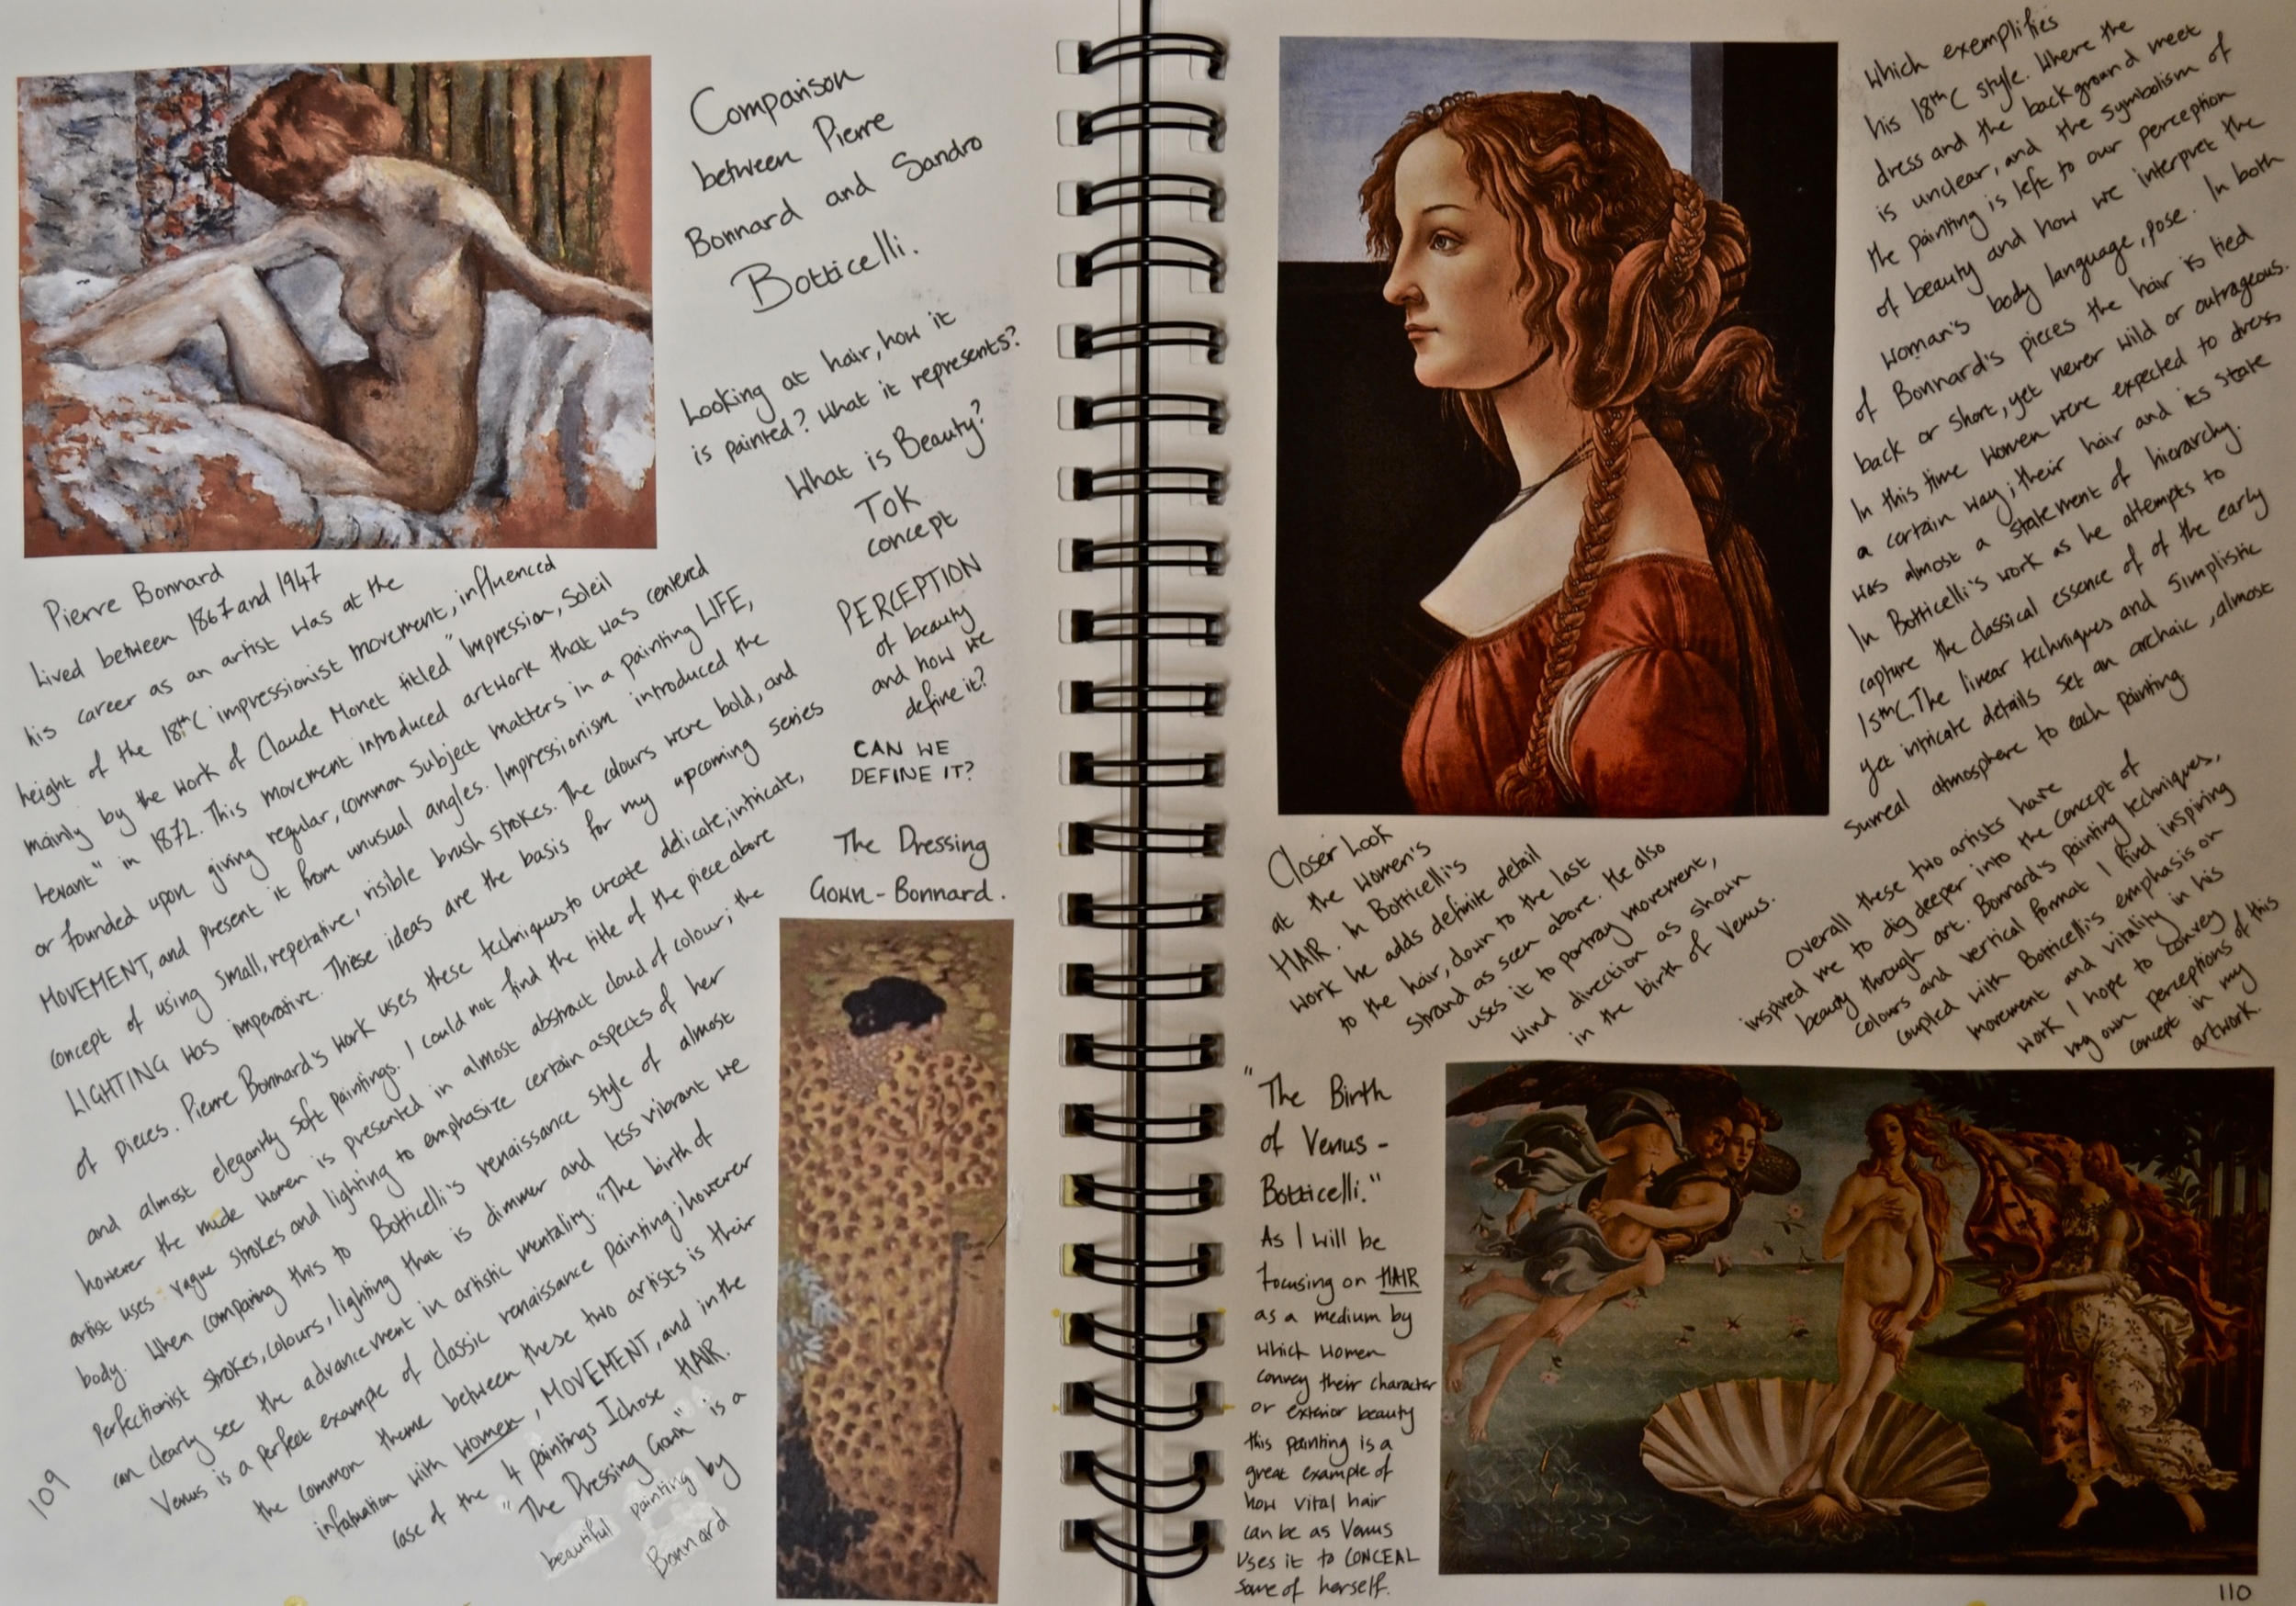 Comparison
between Pierre
Bonnard and Sandro
Botticelli.
Looking at hair, how it
is painted? What it represents?
What is Beauty?
TOK
concept
PERCEPTION
of beauty
and how we
define it?
CAN WE
DEFINE IT?
The Dressing
Gown - Bonnard.
Pierre Bonnard
Lived between 1867 and 1947
his career as an artist was at the
height of the 18thC impressionist movement, influenced
mainly by the work of Claude Monet titled "Impression, Soleil
Levant" in 1872. This movement introduced artwork that was centered
or founded upon giving regular, common subject matters in a painting LIFE,
MOVEMENT, and present it from unusual angles. Impressionism introduced the
concept of using small, repetative, visible brush strokes. The colours were bold, and
LIGHTING was imperative. These ideas are the basis for my upcoming series
of pieces. Pierre Bonnard's work uses these techniques to create delicate, intricate,
and almost elegantly soft paintings. I could not find the title of the piece above
however the nude women is presented in almost abstract cloud of colour; the
artist uses vague strokes and lighting to emphasize certain aspects of her
body. When comparing this to Botticelli's renaissance style of almost
perfectionist strokes, colours, lighting that is dimmer and less vibrant we
can clearly see the advancement in artistic mentality. "The birth of
Venus is a perfect example of classic renaissance painting; however
the common theme between these two artists is their
infatuation with women, MOVEMENT, and in the
case of the 4 paintings I chose HAIR.
"The Dressing Gown" is a
beautiful painting by
Bonnard
109
which exemplifies
his 18thC style. Where the
dress and the background meet
is unclear, and the symbolism of
the painting is left to our perception
of beauty and how we interpret the
woman's body language, pose. In both
of Bonnard's pieces the hair is tied
back or short, yet never wild or outrageous.
In this time women were expected to dress
a certain way; their hair and its state
was almost a statement of hierarchy.
In Botticelli's work as he attempts to
capture the classical essence of of the early
15thC. The linear techniques and simplistic
yet intricate details set an archaic, almost
surreal atmosphere to each painting
Closer Look
at the women's
HAIR. In Botticelli's
work he adds definite detail
to the hair, down to the last
strand as seen above. He also
uses it to portray movement,
wind direction as shown
in the birth of Venus.
Overall these two artists have
inspired me to dig deeper into the concept of
beauty through art. Bonnard's painting techniques,
colours and vertical format I find inspiring
coupled with Botticelli's emphasis on
movement and vitality in his
work I hope to convey
my own perceptions of this
concept in my
artwork.
"The Birth
of Venus -
Botticelli."
As I will be
focusing on HAIR
as a medium by
which women
convey their character
or exterior beauty
this painting is a
great example of
how vital hair
can be as Venus
uses it to CONCEAL
some of herself.
110